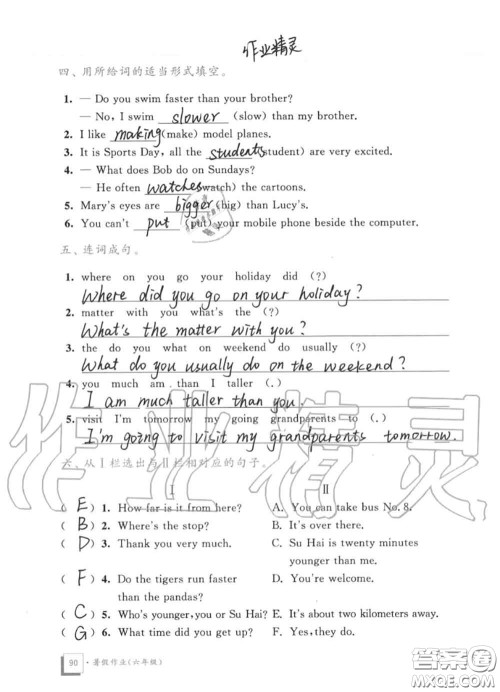 作业精灵
四、用所给词的适当形式填空。
1. — Do you swim faster than your brother?
— No, I swim slower (slow) than my brother.
2. I like making (make) model planes.
3. It is Sports Day, all the students (student) are very excited.
4. — What does Bob do on Sundays?
— He often watches (watch) the cartoons.
5. Mary's eyes are bigger (big) than Lucy's.
6. You can't put (put) your mobile phone beside the computer.
五、连词成句。
1. where on you go your holiday did (?)
Where did you go on your holiday?
2. matter with you what's the (?)
What's the matter with you?
3. the do you what on weekend do usually (?)
What do you usually do on the weekend?
4. you much am than I taller (.)
I am much taller than you.
5. visit I'm tomorrow my going grandparents to (.)
I'm going to visit my grandparents tomorrow.
六、从Ⅰ栏选出与Ⅱ栏相对应的句子。
Ⅰ Ⅱ
( E ) 1. How far is it from here? A. You can take bus No. 8.
( B ) 2. Where's the stop? B. It's over there.
( D ) 3. Thank you very much. C. Su Hai is twenty minutes
younger than me.
( F ) 4. Do the tigers run faster D. You're welcome.
than the pandas?
( C ) 5. Who's younger, you or Su Hai? E. It's about two kilometers away.
( G ) 6. What time did you get up? F. Yes, they do.
90 · 暑假作业(六年级)
作业精灵